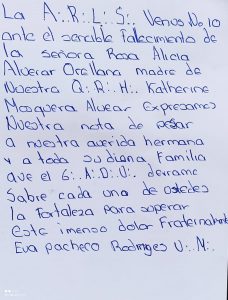 La A∴R∴L∴S∴ Venus No 10
ante el sensible Falecimiento de
la señora Rosa Alicia
Alvear Orellana madre de
Nuestra Q∴R∴H∴ Katherine
Mosquera Alvear Expresamos
Nuestra nota de pesar
a nuestra querida hermana
y a toda su digna Familia
que el G∴A∴D∴U∴ derrame
Sobre cada uno de ustedes
la Fortaleza para superar
Este imenso dolor Fraternalmente
Eva pacheco Rodrigues V∴M∴